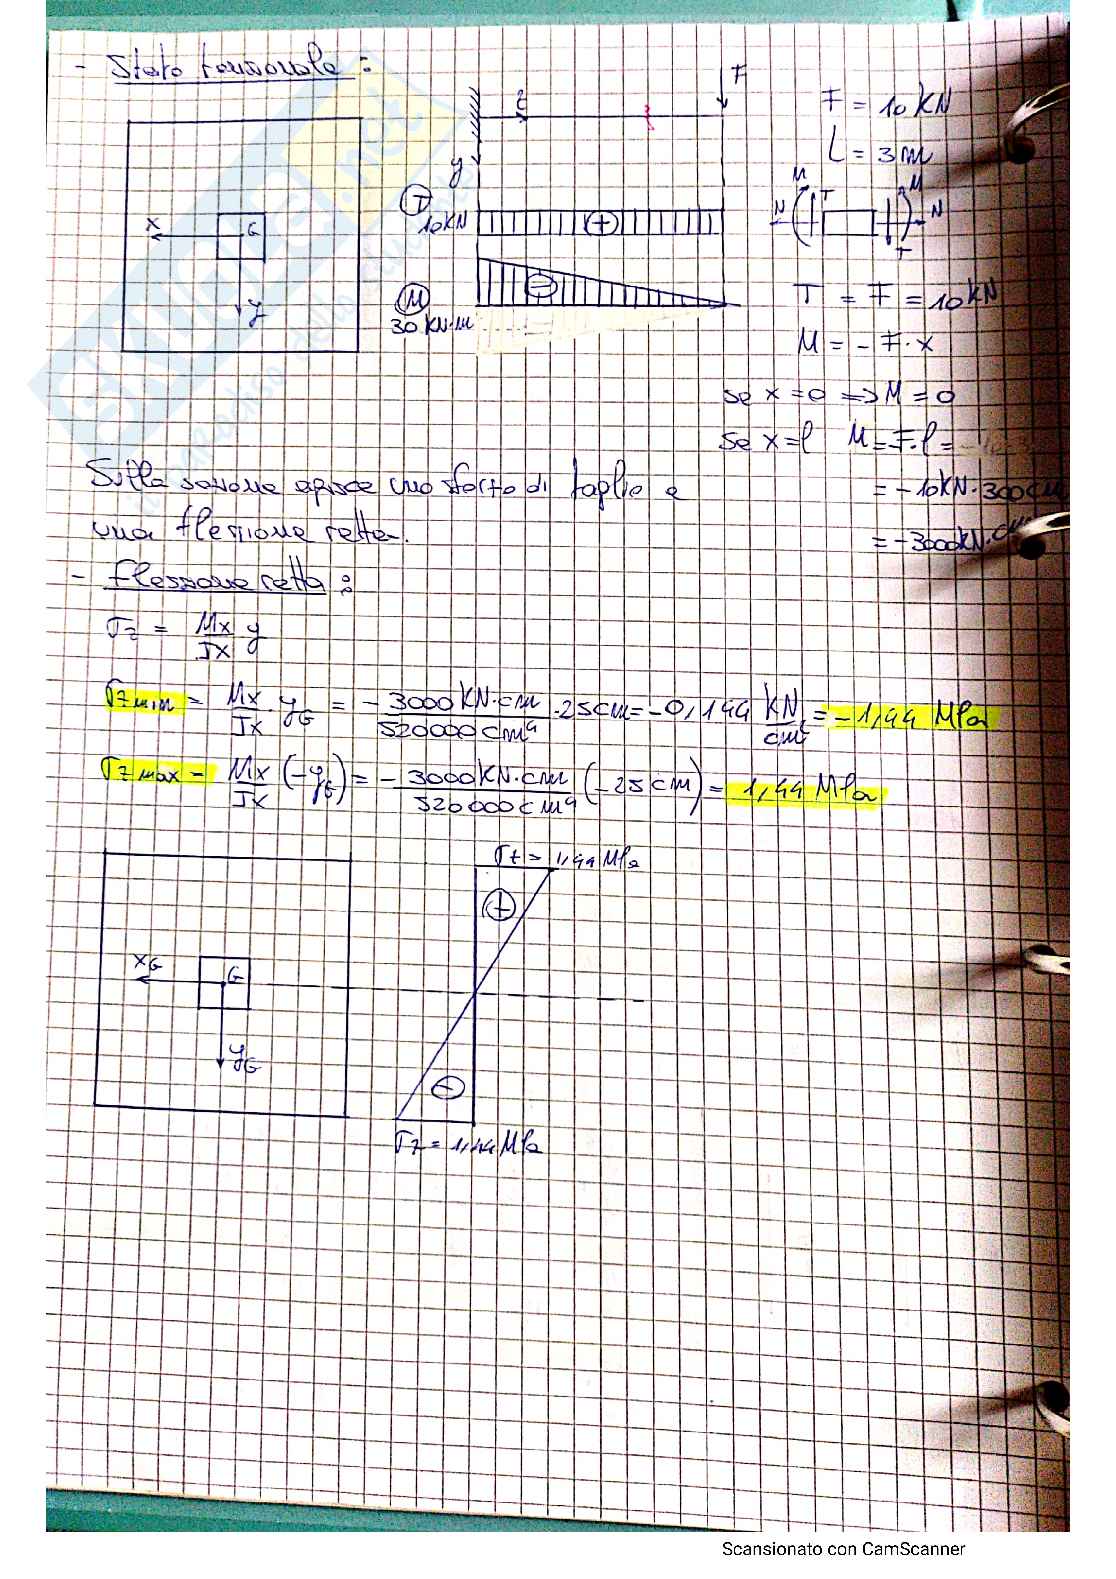 - Stato tensionale :
F
z
y
F = 10 KN
L = 3 m
x
G
y
T
10 KN
+
M
30 KN·m
-
M
M
N
T
N
T
T = F = 10 KN
M = - F · x
se x = 0 => M = 0
se x = l M = F·l =
= - 10 KN · 300 cm
= - 3000 KN·cm
Sulla sezione agisce uno sforzo di taglio e
una flessione retta.
- flessione retta :
σz = Mx/Jx y
σz min = Mx/Jx · yG = - 3000 KN·cm/520000 cm⁴ · 25 cm = - 0,144 KN/cm² = - 1,44 MPa
σz max = Mx/Jx (-yG) = - 3000 KN·cm/520000 cm⁴ (-25 cm) = 1,44 MPa
σz = 1,44 MPa
+
xG
G
yG
σz = 1,44 MPa
Scansionato con CamScanner